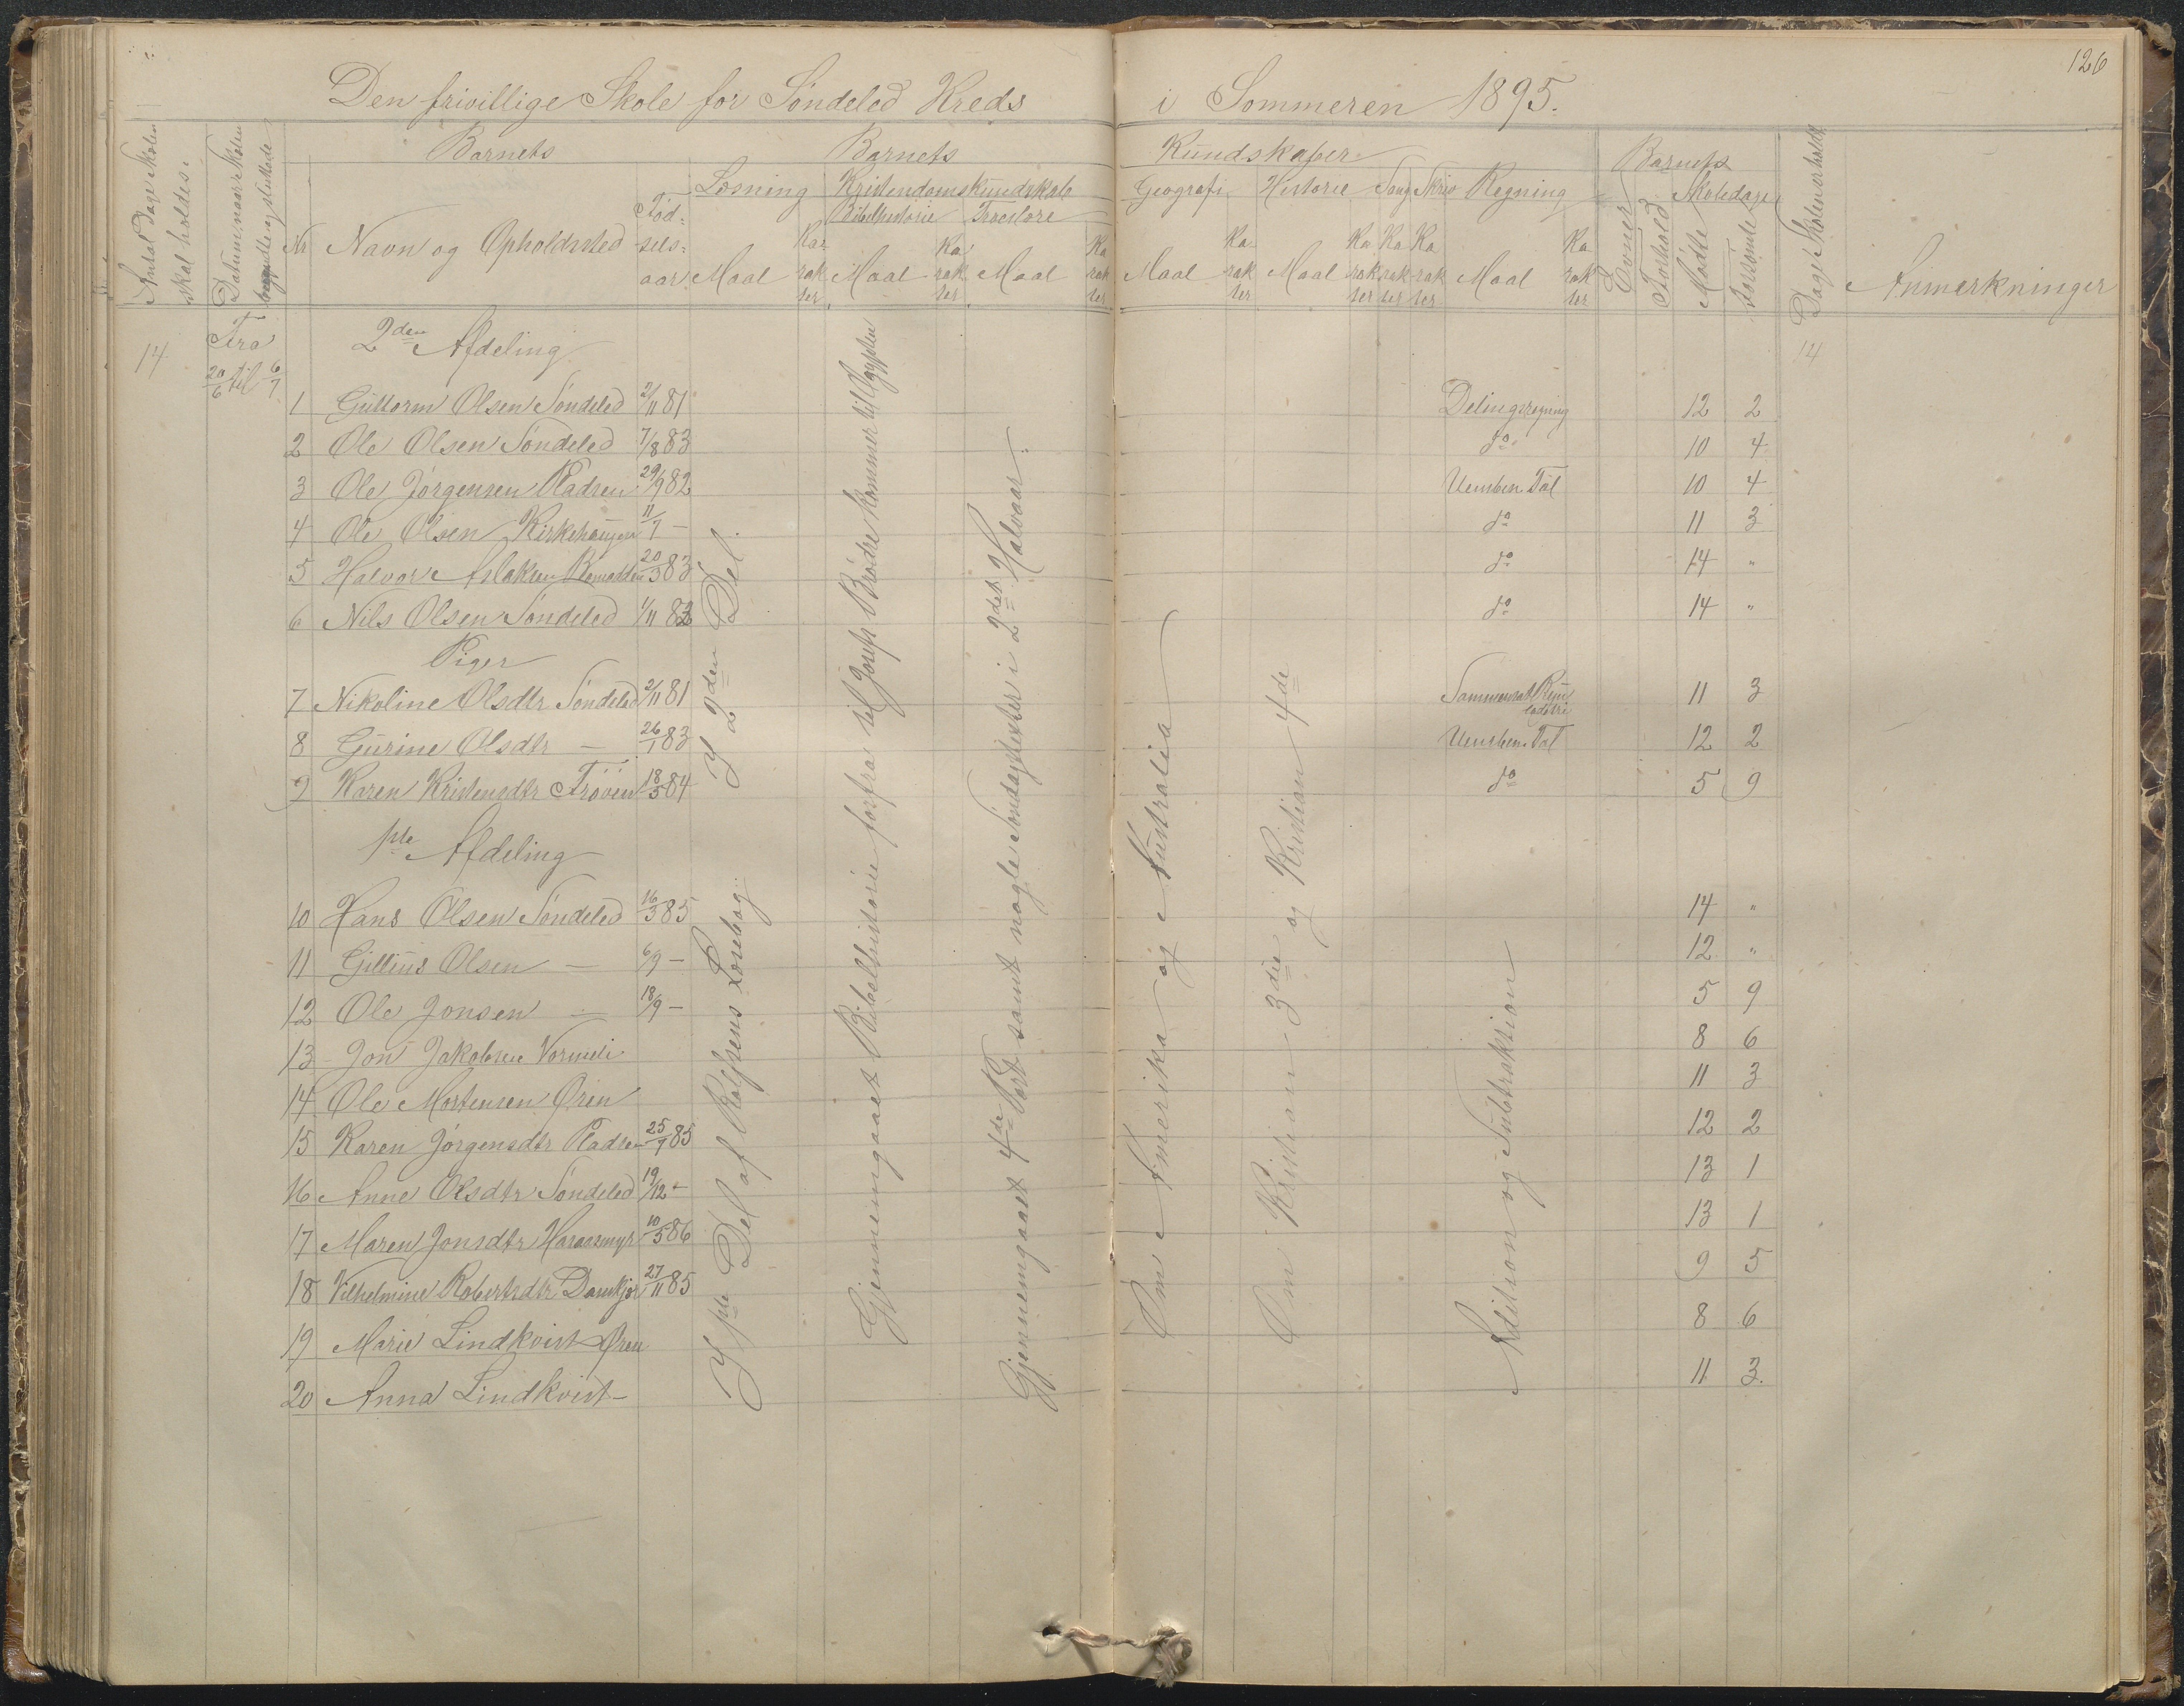 126
Den frivillige Skole for Söndeled Kreds i Sommeren 1895.
Antal Dage Skolen skal holdes.
Datum, naar Skolen begyndte og sluttede
Barnets
Barnets
Kundskaber
Barnets
Dage Skolen er holdt
Læsning
Kristendomskundskab
Bibelhistorie
Troeslære
Geografi
Historie
Sang
Skriv
Regning
Skoledage
Nr
Navn og Opholdssted
Födselsaar
Maal
Karakter
Maal
Karakter
Maal
Karakter
Maal
Karakter
Maal
Karakter
Karakter
Karakter
Maal
Karakter
Evner
Forhold
Mödte
Forsömte
Anmerkninger
14
Fra 20/6 til 6/7
2den Afdeling
14
1 Guttorm Olsen Söndeled 2/11 81 Delingsregning 12 2
2 Ole Olsen Söndeled 7/8 83 do 10 4
3 Ole Jörgensen Pladsen 29/9 82 Uensben. Tal 10 4
4 Ole Olsen Kirkehaugen 11/7 — do 11 3
5 Halvor Aslaksen 20/3 83 do 14 "
6 Nils Olsen Söndeled 1/11 82 do 14 "
Piger
7 Nikoline Olsdtr Söndeled 2/11 81 Sammensat 11 3
8 Gurine Olsdtr — 26/1 83 Uensben. Tal 12 2
9 Karen Kristensdtr Fröven 18/5 84 do 5 9
1ste Afdeling
10 Hans Olsen Söndeled 16/3 85 14 "
11 Olsen — 6/9 — 12 "
12 Ole Jonsen — 18/9 — 5 9
13 Jon Jakobsen Vormeli 8 6
14 Ole Mortensen Øren 11 3
15 Karen Jörgensdtr Pladsen 25/9 85 12 2
16 Anne Olsdtr Söndeled 19/12 — 13 1
17 Maren Jonsdtr Haraasmyr 10/5 86 13 1
18 Vilhelmine Robertsdtr 27/11 85 9 5
19 Marie Lindkvist Øren 8 6
20 Anna Lindkvist — 11 3.
I 2den Del.
I 1ste Del af Rolfsens Læsebog.
Gjennemgaaet Bibelhistorie forfra til Josefs Brödre kommer til Egypten
Gjennemgaaet 4de Part samt nogle Söndagstexter i 2det Halvaar.
Om Amerika og Australia
Om Kristian 3die og Kristian 4de
Adition og Subtraktion